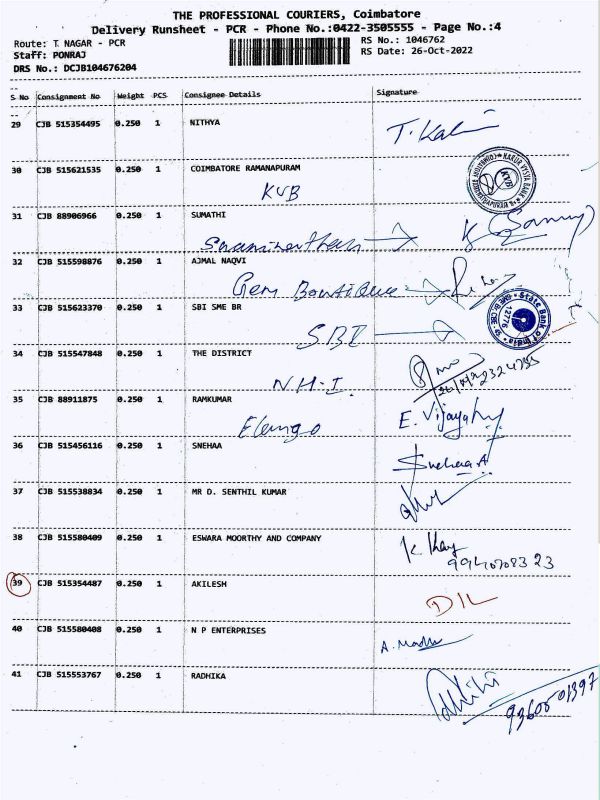 THE PROFESSIONAL COURIERS, Coimbatore
Delivery Runsheet - PCR - Phone No.:0422-3505555 - Page No.:4
Route: T NAGAR - PCR
RS No.: 1046762
Staff: PONRAJ
RS Date: 26-Oct-2022
DRS No.: DCJB104676204
S No Consignment No Weight PCS Consignee Details Signature
29 CJB 515354495 0.250 1 NITHYA
30 CJB 515621535 0.250 1 COIMBATORE RAMANAPURAM
KVB
KARUR VYSYA BANK
KVB
31 CJB 88906966 0.250 1 SUMATHI
32 CJB 515598876 0.250 1 AJMAL NAQVI
Gem Boutique
33 CJB 515623370 0.250 1 SBI SME BR
SBI
State Bank of India
12776
34 CJB 515547848 0.250 1 THE DISTRICT
N.H.I.
35 CJB 88911875 0.250 1 RAMKUMAR
Elango
E. Vijaya
36 CJB 515456116 0.250 1 SNEHAA
Snehaa A
37 CJB 515538834 0.250 1 MR D. SENTHIL KUMAR
38 CJB 515580409 0.250 1 ESWARA MOORTHY AND COMPANY
39 CJB 515354487 0.250 1 AKILESH
D/L
40 CJB 515580408 0.250 1 N P ENTERPRISES
A. Madhu
41 CJB 515553767 0.250 1 RADHIKA